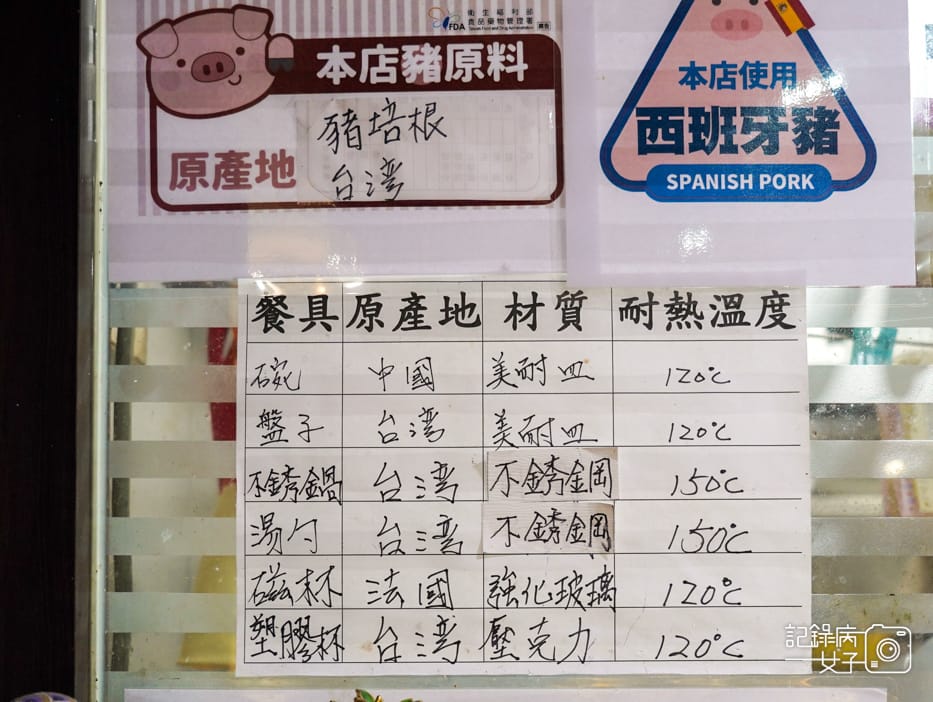 衛生福利部
食品藥物管理署
FDA
Taiwan Food and Drug Administration
廣告
本店豬原料
豬培根
原產地
台湾
本店使用
西班牙豬
SPANISH PORK
餐具 原產地 材質 耐熱溫度
碗 中國 美耐皿 120°C
盤子 台湾 美耐皿 120°C
不銹鍋 台湾 不銹鋼 150°C
湯勺 台湾 不銹鋼 150°C
磁杯 法國 強化玻璃 120°C
塑膠杯 台湾 壓克力 120°C
記錄病
女子